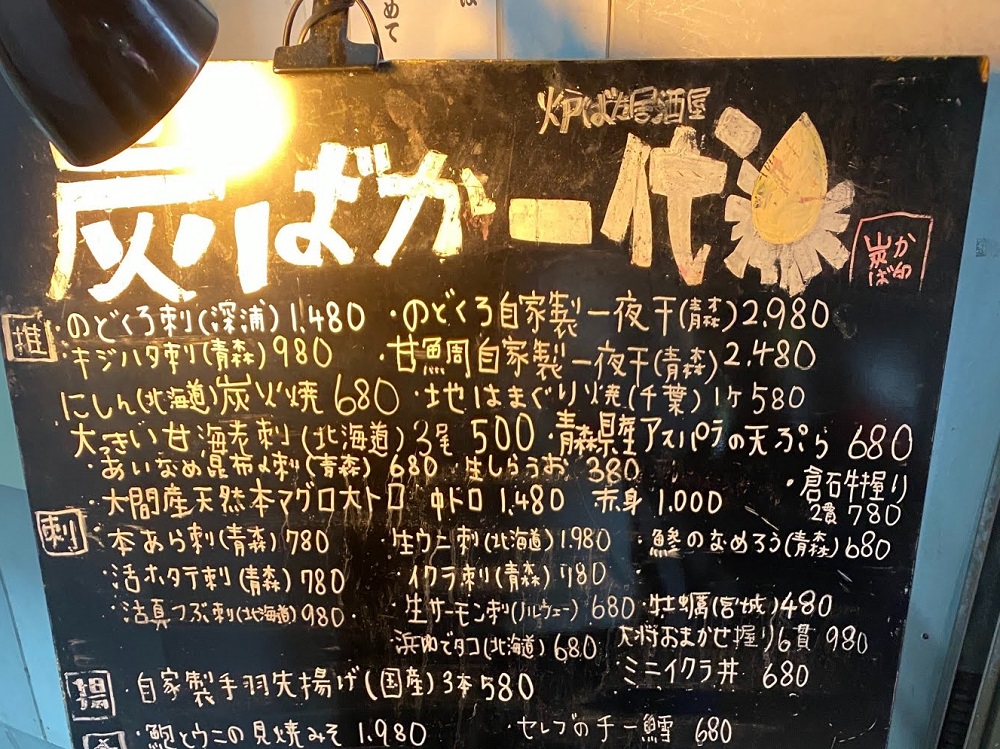 めて
は
炉ばた居酒屋
炭ばか一代
炭ばか
推
・のどくろ刺(深浦)1,480 ・のどくろ自家製一夜干(青森)2,980
・キジハタ刺(青森)980 ・甘鯛自家製一夜干(青森)2,480
にしん(北海道)炭火焼 680 ・地はまぐり焼(千葉)1ヶ580
大きい甘海老刺(北海道)3尾 500 ・青森県産アスパラの天ぷら 680
・あいなめ昆布〆刺(青森) 680 生しらうお 380
・大間産天然本マグロ大トロ 中トロ 1,480 赤身 1,000
・倉石牛握り
2貫 780
刺
・本あら刺(青森)780 ・生ウニ刺(北海道)1,980 ・鯵のなめろう(青森)680
・活ホタテ刺(青森)780 ・イクラ刺(青森)780
・活真つぶ刺(北海道)980 ・生サーモン刺(ノルウェー)680 ・牡蠣(宮城)480
・浜ゆでタコ(北海道)680 大将おまかせ握り6貫 980
・ミニイクラ丼 680
揚
・自家製手羽先揚げ(国産)3本580
・鮑とウニの貝焼みそ 1,980 ・セレブのチー鱈 680